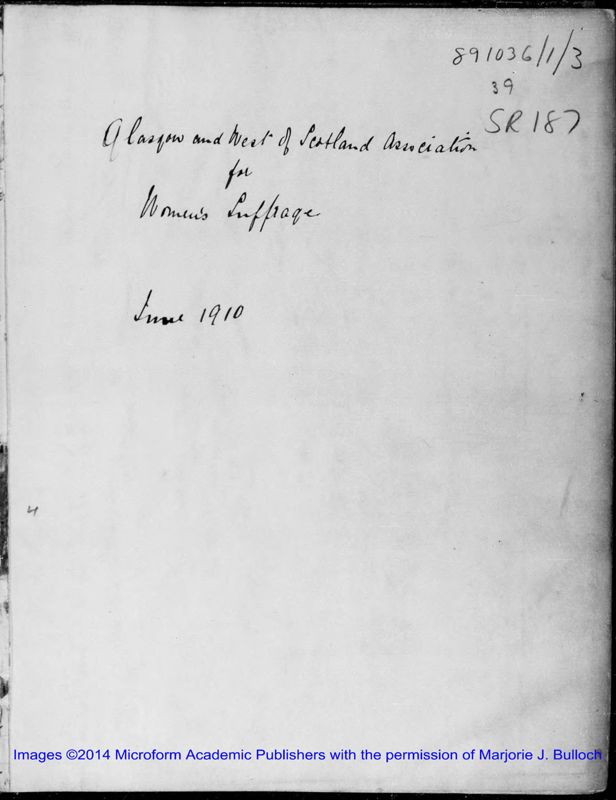 891036/1/3
39
SR 187
Glasgow and West of Scotland Association
for
Women's Suffrage
June 1910
4
Images ©2014 Microform Academic Publishers with the permission of Marjorie J. Bulloch